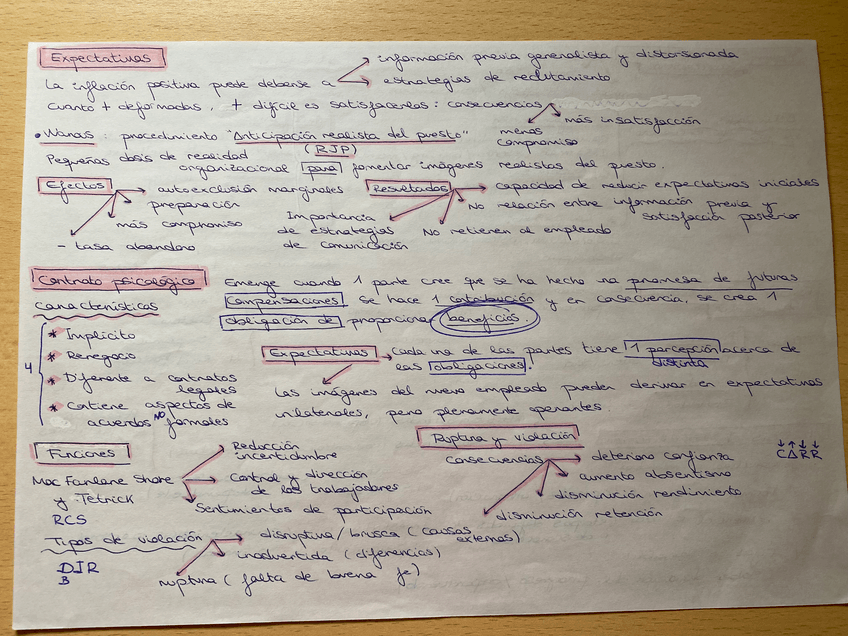 Expectativas
información previa generalista y distorsionada
La inflación positiva puede deberse a
estrategias de reclutamiento
Cuanto + deformadas, + difícil es satisfacerlas: consecuencias
más insatisfacción
menos
compromiso
• Wanas: procedimiento "Anticipación realista del puesto"
(RJP)
Pequeñas dosis de realidad
organizacional para fomentar imágenes realistas del puesto.
Efectos
autoexclusión marginales
preparación
más compromiso
- tasa abandono
Resultados
capacidad de reducir expectativas iniciales
No relación entre información previa y
satisfacción posterior
No retienen al empleado
Importancia
de estrategias
de comunicación
Contrato psicológico
Emerge cuando 1 parte cree que se ha hecho na promesa de futuras
compensaciones se hace 1 contribución y en consecuencia, se crea 1
obligación de proporcionar beneficios.
características
4
* Implícito
* Renegocio
* Diferente a contratos
legales
* Contiene aspectos de
acuerdos NO formales
Expectativas
Cada una de las partes tiene 1 percepción acerca de
distinta
las obligaciones.
Las imágenes del nuevo empleado pueden derivar en expectativas
unilaterales, pero plenamente operantes.
Funciones
Mac Farlane Shore
y Tetrick
RCS
Reducción
incertidumbre
Control y dirección
de los trabajadores
Sentimientos de participación
Ruptura y violación
consecuencias
deterioro confianza
aumento absentismo
disminución rendimiento
disminución retención
↓ ↑ ↓ ↓
C A R R
Tipos de violación
DIR
B
disruptiva/brusca (causas
externas)
inadvertida (diferencias)
ruptura (falta de buena fe)